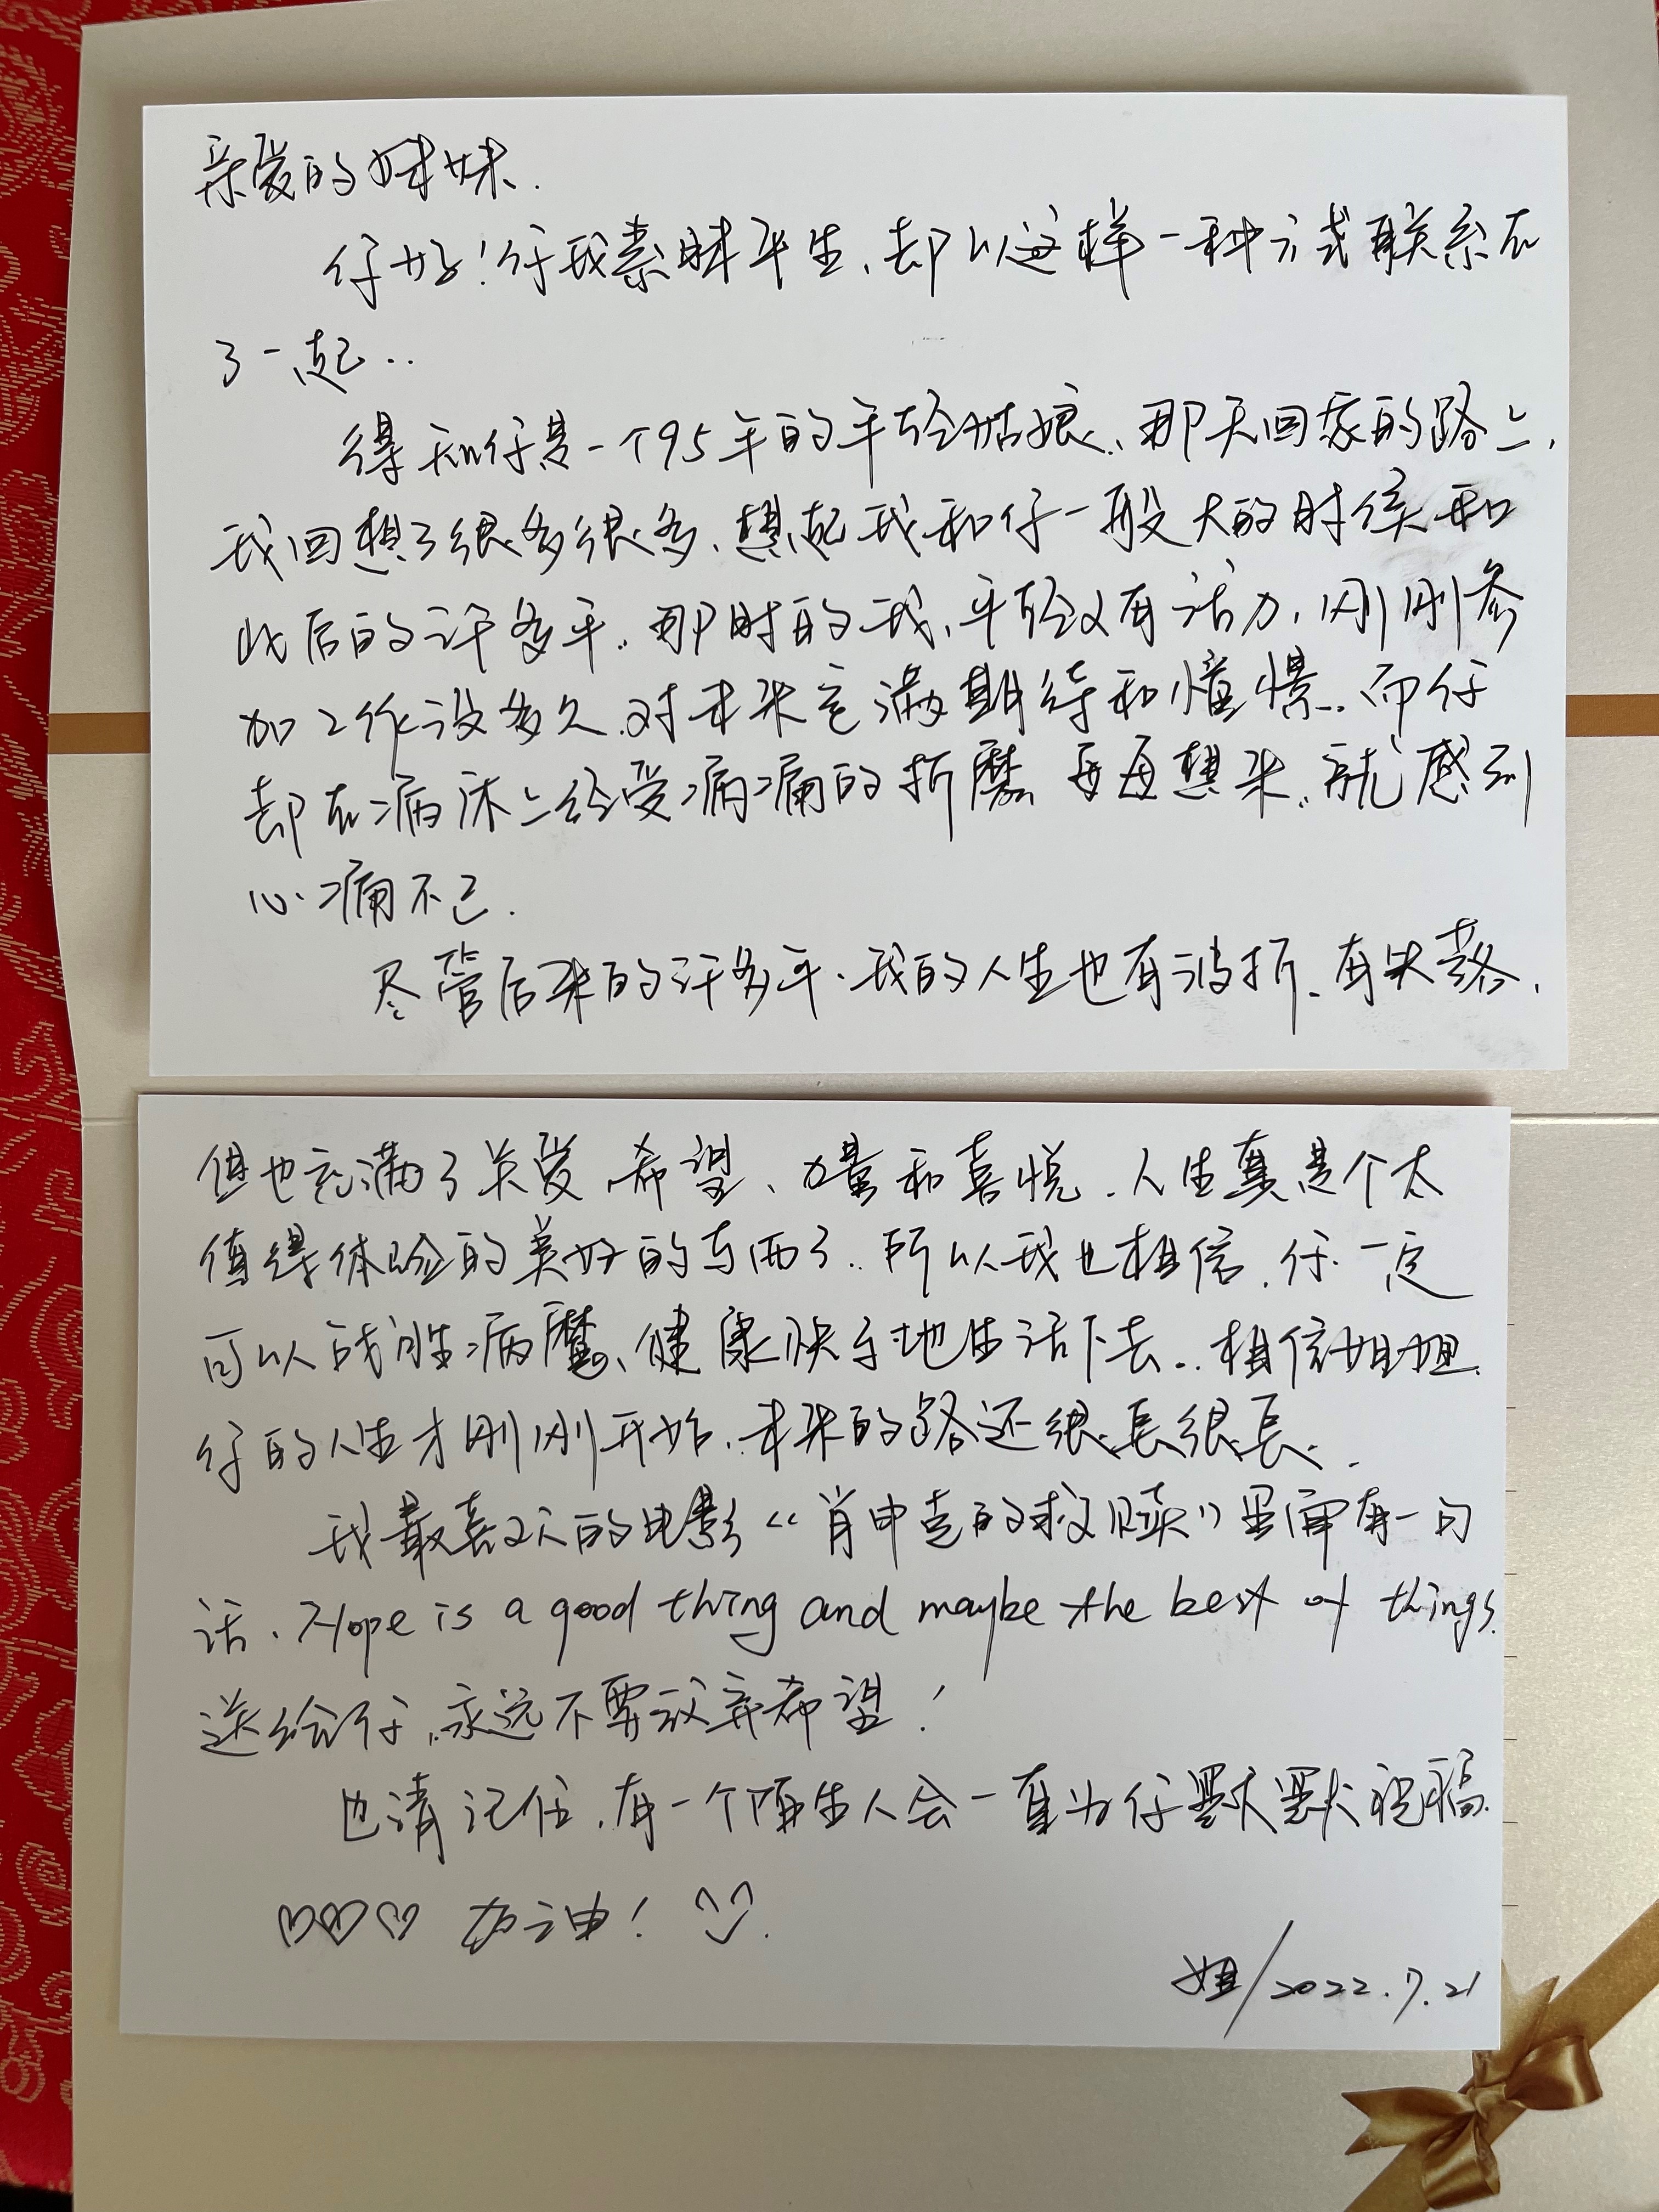 亲爱的妹妹.
你好！你我素昧平生、却以这样一种方式联系在
了一起..
得知你是一个95年的年轻姑娘..那天回家的路上,
我回想了很多很多、想起我和你一般大的时候和
此后的许多年..那时的我、年轻又有活力,刚刚参
加工作没多久.对未来充满期待和憧憬..而你
却在病床上经受病痛的折磨.每每想来..就感到
心痛不已.
尽管后来的许多年.我的人生也有波折、有失落,
但也充满了关爱、希望、力量和喜悦.人生真是个太
值得体验的美好的东西了..所以我也相信,你一定
可以战胜病魔、健康快乐地生活下去..相信姐姐.
你的人生才刚刚开始..未来的路还很长很长.
我最喜欢的电影《肖申克的救赎》里面有一句
话、Hope is a good thing and maybe the best of things.
送给你,永远不要放弃希望！
也请记住,有一个陌生人会一直为你默默祝福.
♡♡♡ 加油！
姐/2022.7.21